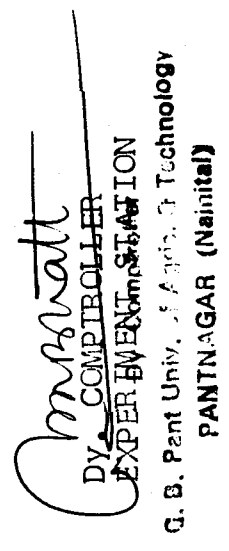 DY. COMPTROLLER
EXPERIMENT STATION
Dy. Comptroller
G. B. Pant Univ. of Agric. & Technology
PANTNAGAR (Nainital)